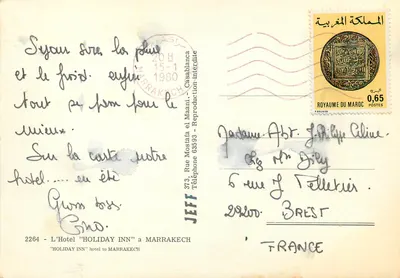 Séjour sous la pluie
et le froid. enfin
tout se passe pour le
mieux.
Sur la carte notre
hotel.... en été
Gros
2264 - L'Hotel "HOLIDAY INN" a MARRAKECH
"HOLIDAY INN" hotel to MARRAKECH
JEFF
373, Rue Mostafa el Maani, Casablanca
Téléphone 63593 - Reproduction interdite
20H
15-1
1980
MARRAKECH
المملكة المغربية
0,65
ROYAUME DU MAROC
POSTES
Madame Abt. J. Philippe Céline
Chez Mr
6 rue J. Pelletier
29200. BREST
FRANCE